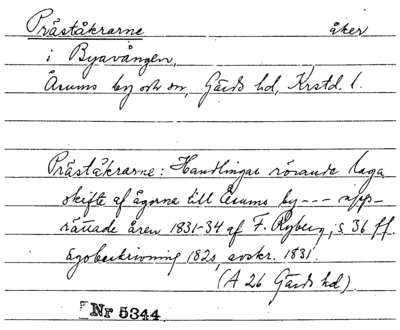 Präståkrarne åker
i Byavången,
Åsums by och sn, Gärds hd, Krstd. l.
Präståkrarne: Handlingar rörande laga
skifte af ägorna till Åsums by --- upp-
rättade åren 1831-34 af F. Ryberg, s. 36 ff.
Egobeskrivning 1825, avskr. 1831.
(A 26 Gärds hd).
Nr 5344